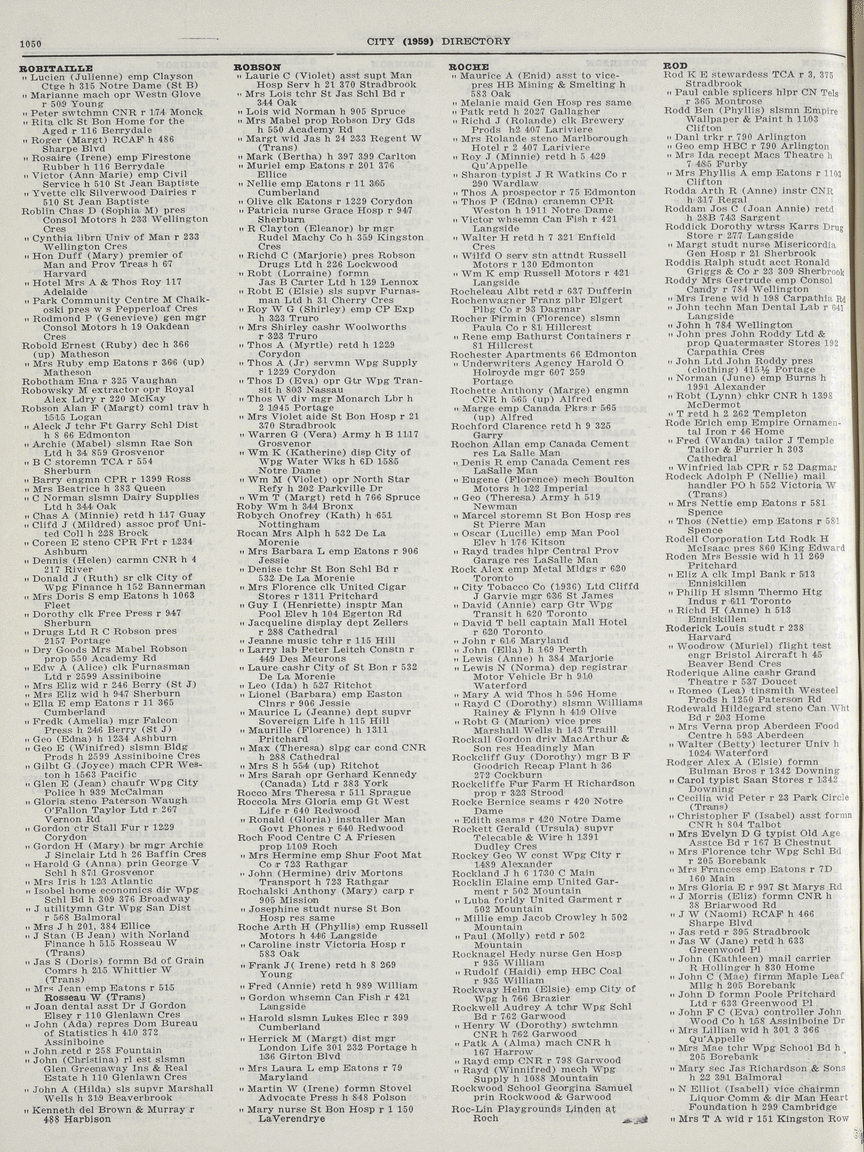 1050
CITY (1959) DIRECTORY
ROBITAILLE
" Lucien (Julienne) emp Clayson
Ctge h 315 Notre Dame (St B)
" Marianne mach opr Westn Glove
r 509 Young
" Peter swtchmn CNR r 174 Monck
" Rita clk St Bon Home for the
Aged r 116 Berrydale
" Roger (Margt) RCAF h 486
Sharpe Blvd
" Rosaire (Irene) emp Firestone
Rubber h 116 Berrydale
" Victor (Ann Marie) emp Civil
Service h 510 St Jean Baptiste
" Yvette clk Silverwood Dairies r
510 St Jean Baptiste
Roblin Chas D (Sophia M) pres
Consol Motors h 233 Wellington
Cres
" Cynthia librn Univ of Man r 233
Wellington Cres
" Hon Duff (Mary) premier of
Man and Prov Treas h 67
Harvard
" Hotel Mrs A & Thos Roy 117
Adelaide
" Park Community Centre M Chaik-
oski pres w s Pepperloaf Cres
" Rodmond P (Genevieve) gen mgr
Consol Motors h 19 Oakdean
Cres
Robold Ernest (Ruby) dec h 366
(up) Matheson
" Mrs Ruby emp Eatons r 366 (up)
Matheson
Robotham Ena r 325 Vaughan
Robowsky M extractor opr Royal
Alex Ldry r 220 McKay
Robson Alan F (Margt) coml trav h
1515 Logan
" Aleck J tchr Ft Garry Schl Dist
h s 66 Edmonton
" Archie (Mabel) slsmn Rae Son
Ltd h 34 859 Grosvenor
" B C storemn TCA r 554
Sherburn
" Barry engmn CPR r 1399 Ross
" Mrs Beatrice h 383 Queen
" C Norman slsmn Dairy Supplies
Ltd h 344 Oak
" Chas A (Minnie) retd h 117 Guay
" Clifd J (Mildred) assoc prof Uni-
ted Coll h 228 Brock
" Coreen E steno CPR Frt r 1234
Ashburn
" Dennis (Helen) carmn CNR h 4
217 River
" Donald J (Ruth) sr clk City of
Wpg Finance h 152 Bannerman
" Mrs Doris S emp Eatons h 1063
Fleet
" Dorothy clk Free Press r 947
Sherburn
" Drugs Ltd R C Robson pres
2157 Portage
" Dry Goods Mrs Mabel Robson
prop 550 Academy Rd
" Edw A (Alice) clk Furnasman
Ltd r 2599 Assiniboine
" Mrs Eliz wid r 246 Berry (St J)
" Mrs Eliz wid h 947 Sherburn
" Ella E emp Eatons r 11 365
Cumberland
" Fredk (Amelia) mgr Falcon
Press h 246 Berry (St J)
" Geo (Edna) h 1234 Ashburn
" Geo E (Winifred) slsmn Bldg
Prods h 2599 Assiniboine Cres
" Gilbt G (Joyce) mach CPR Wes-
ton h 1563 Pacific
" Glen E (Jean) chaufr Wpg City
Police h 939 McCalman
" Gloria steno Paterson Waugh
O'Fallon Taylor Ltd r 267
Vernon Rd
" Gordon ctr Stall Fur r 1229
Corydon
" Gordon H (Mary) br mgr Archie
J Sinclair Ltd h 26 Baffin Cres
" Harold G (Anna) prin George V
Schl h 871 Grosvenor
" Mrs Iris h 123 Atlantic
" Isobel home economics dir Wpg
Schl Bd h 309 376 Broadway
" J utilitymn Gtr Wpg San Dist
r 568 Balmoral
" Mrs J h 201, 384 Ellice
" J Stan (B Jean) with Norland
Finance h 515 Rosseau W
(Trans)
" Jas S (Doris) formn Bd of Grain
Comrs h 215 Whittier W
(Trans)
" Mrs Jean emp Eatons r 515
Rosseau W (Trans)
" Joan dental asst Dr J Gordon
Elsey r 110 Glenlawn Cres
" John (Ada) repres Dom Bureau
of Statistics h 410 372
Assiniboine
" John retd r 258 Fountain
" John (Christina) rl est slsmn
Glen Greenaway Ins & Real
Estate h 110 Glenlawn Cres
" John A (Hilda) sls supvr Marshall
Wells h 319 Beaverbrook
" Kenneth del Brown & Murray r
488 Harbison
ROBSON
" Laurie C (Violet) asst supt Man
Hosp Serv h 21 370 Stradbrook
" Mrs Lois tchr St Jas Schl Bd r
344 Oak
" Lois wid Norman h 905 Spruce
" Mrs Mabel prop Robson Dry Gds
h 550 Academy Rd
" Margt wid Jas h 24 233 Regent W
(Trans)
" Mark (Bertha) h 397 399 Carlton
" Muriel emp Eatons r 201 376
Ellice
" Nellie emp Eatons r 11 365
Cumberland
" Olive clk Eatons r 1229 Corydon
" Patricia nurse Grace Hosp r 947
Sherburn
" R Clayton (Eleanor) br mgr
Rudel Machy Co h 359 Kingston
Cres
" Richd C (Marjorie) pres Robson
Drugs Ltd h 226 Lockwood
" Robt (Lorraine) formn
Jas B Carter Ltd h 129 Lennox
" Robt E (Elsie) sls supvr Furnas-
man Ltd h 31 Cherry Cres
" Roy W G (Shirley) emp CP Exp
h 323 Truro
" Mrs Shirley cashr Woolworths
r 323 Truro
" Thos A (Myrtle) retd h 1229
Corydon
" Thos A (Jr) servmn Wpg Supply
r 1229 Corydon
" Thos D (Eva) opr Gtr Wpg Tran-
sit h 803 Nassau
" Thos W div mgr Monarch Lbr h
2 1945 Portage
" Mrs Violet aide St Bon Hosp r 21
370 Stradbrook
" Warren G (Vera) Army h B 1117
Grosvenor
" Wm K (Katherine) disp City of
Wpg Water Wks h 6D 1585
Notre Dame
" Wm M (Violet) opr North Star
Refy h 202 Parkville Dr
" Wm T (Margt) retd h 766 Spruce
Roby Wm h 344 Bronx
Robych Onofrey (Kath) h 651
Nottingham
Rocan Mrs Alph h 532 De La
Morenie
" Mrs Barbara L emp Eatons r 906
Jessie
" Denise tchr St Bon Schl Bd r
532 De La Morenie
" Mrs Florence clk United Cigar
Stores r 1311 Pritchard
" Guy I (Henriette) insptr Man
Pool Elev h 104 Egerton Rd
" Jacqueline display dept Zellers
r 288 Cathedral
" Jeanne music tchr r 115 Hill
" Larry lab Peter Leitch Constn r
449 Des Meurons
" Laure cashr City of St Bon r 532
De La Morenie
" Leo (Ida) h 527 Ritchot
" Lionel (Barbara) emp Easton
Clnrs r 906 Jessie
" Maurice L (Jeanne) dept supvr
Sovereign Life h 115 Hill
" Maurille (Florence) h 1311
Pritchard
" Max (Theresa) slpg car cond CNR
h 288 Cathedral
" Mrs S h 554 (up) Ritchot
" Mrs Sarah opr Gerhard Kennedy
(Canada) Ltd r 383 York
Rocco Mrs Theresa r 511 Sprague
Roccola Mrs Gloria emp Gt West
Life r 640 Redwood
" Ronald (Gloria) installer Man
Govt Phones r 640 Redwood
Roch Food Centre C A Friesen
prop 1109 Roch
" Mrs Hermine emp Shur Foot Mat
Co r 723 Rathgar
" John (Hermine) driv Mortons
Transport h 723 Rathgar
Rochalski Anthony (Mary) carp r
905 Mission
" Josephine studt nurse St Bon
Hosp res same
Roche Arth H (Phyllis) emp Russell
Motors h 446 Langside
" Caroline instr Victoria Hosp r
583 Oak
" Frank J( Irene) retd h 8 269
Young
" Fred (Annie) retd h 989 William
" Gordon whsemn Can Fish r 421
Langside
" Harold slsmn Lukes Elec r 399
Cumberland
" Herrick M (Margt) dist mgr
London Life 301 232 Portage h
136 Girton Blvd
" Mrs Laura L emp Eatons r 79
Maryland
" Martin W (Irene) formn Stovel
Advocate Press h 848 Polson
" Mary nurse St Bon Hosp r 1 150
LaVerendrye
ROCHE
" Maurice A (Enid) asst to vice-
pres HB Mining & Smelting h
583 Oak
" Melanie maid Gen Hosp res same
" Patk retd h 2027 Gallagher
" Richd J (Rolande) clk Brewery
Prods h2 407 Lariviere
" Mrs Rolande steno Marlborough
Hotel r 2 407 Lariviere
" Roy J (Minnie) retd h 5 429
Qu'Appelle
" Sharon typist J R Watkins Co r
290 Wardlaw
" Thos A prospector r 75 Edmonton
" Thos P (Edna) cranemn CPR
Weston h 1911 Notre Dame
" Victor whsemn Can Fish r 421
Langside
" Walter H retd h 7 321 Enfield
Cres
" Wilfd O serv stn attndt Russell
Motors r 130 Edmonton
" Wm K emp Russell Motors r 421
Langside
Rocheleau Albt retd r 637 Dufferin
Rochenwagner Franz plbr Elgert
Plbg Co r 93 Dagmar
Rocher Pirmin (Florence) slsmn
Paula Co r 81 Hillcrest
" Rene emp Bathurst Containers r
81 Hillcrest
Rochester Apartments 66 Edmonton
" Underwriters Agency Harold O
Holroyde mgr 607 259
Portage
Rochette Anthony (Marge) engmn
CNR h 565 (up) Alfred
" Marge emp Canada Pkrs r 565
(up) Alfred
Rochford Clarence retd h 9 325
Garry
Rochon Allan emp Canada Cement
res La Salle Man
" Denis R emp Canada Cement res
LaSalle Man
" Eugene (Florence) mech Boulton
Motors h 122 Imperial
" Geo (Theresa) Army h 519
Newman
" Marcel storemn St Bon Hosp res
St Pierre Man
" Oscar (Lucille) emp Man Pool
Elev h 176 Kitson
" Rayd trades hlpr Central Prov
Garage res LaSalle Man
Rock Alex emp Metal Mldgs r 620
Toronto
" City Tobacco Co (1936) Ltd Cliffd
J Garvie mgr 636 St James
" David (Annie) carp Gtr Wpg
Transit h 620 Toronto
" David T bell captain Mall Hotel
r 620 Toronto
" John r 616 Maryland
" John (Ella) h 169 Perth
" Lewis (Anne) h 384 Marjorie
" Lewis N (Norma) dep registrar
Motor Vehicle Br h 910
Waterford
" Mary A wid Thos h 596 Home
" Rayd C (Dorothy) slsmn Williams
Rainey & Flynn h 419 Olive
" Robt G (Marion) vice pres
Marshall Wells h 143 Traill
Rockall Gordon driv MacArthur &
Son res Headingly Man
Rockcliff Guy (Dorothy) mgr B F
Goodrich Recap Plant h 36
272 Cockburn
Rockcliffe Fur Farm H Richardson
prop r 323 Strood
Rocke Bernice seams r 420 Notre
Dame
" Edith seams r 420 Notre Dame
Rockett Gerald (Ursula) supvr
Telecable & Wire h 1391
Dudley Cres
Rockey Geo W const Wpg City r
1489 Alexander
Rockland J h 6 1730 C Main
Rocklin Elaine emp United Gar-
ment r 502 Mountain
" Luba forldy United Garment r
502 Mountain
" Millie emp Jacob Crowley h 502
Mountain
" Paul (Molly) retd r 502
Mountain
Rocknagel Hedy nurse Gen Hosp
r 935 William
" Rudolf (Haidi) emp HBC Coal
r 935 William
Rockway Helm (Elsie) emp City of
Wpg h 766 Brazier
Rockwell Audrey A tchr Wpg Schl
Bd r 762 Garwood
" Henry W (Dorothy) swtchmn
CNR h 762 Garwood
" Patk A (Alma) mach CNR h
167 Harrow
" Rayd emp CNR r 798 Garwood
" Rayd (Winnifred) mech Wpg
Supply h 1088 Mountain
Rockwood School Georgina Samuel
prin Rockwood & Garwood
Roc-Lin Playgrounds Linden at
Roch
ROD
Rod K E stewardess TCA r 3, 375
Stradbrook
" Paul cable splicers hlpr CN Tels
r 365 Montrose
Rodd Ben (Phyllis) slsmn Empire
Wallpaper & Paint h 1103
Clifton
" Danl trkr r 790 Arlington
" Geo emp HBC r 790 Arlington
" Mrs Ida recept Macs Theatre h
7 485 Furby
" Mrs Phyllis A emp Eatons r 1103
Clifton
Rodda Arth R (Anne) instr CNR
h 317 Regal
Roddam Jos C (Joan Annie) retd
h 28B 743 Sargent
Roddick Dorothy wtrss Karrs Drug
Store r 277 Langside
" Margt studt nurse Misericordia
Gen Hosp r 21 Sherbrook
Roddis Ralph studt acct Ronald
Griggs & Co r 23 309 Sherbrook
Roddy Mrs Gertrude emp Consol
Candy r 784 Wellington
" Mrs Irene wid h 198 Carpathia Rd
" John techn Man Dental Lab r 641
Langside
" John h 784 Wellington
" John pres John Roddy Ltd &
prop Quatermaster Stores 192
Carpathia Cres
" John Ltd John Roddy pres
(clothing) 415½ Portage
" Norman (June) emp Burns h
1991 Alexander
" Robt (Lynn) chkr CNR h 1398
McDermot
" T retd h 2 262 Templeton
Rode Erich emp Empire Ornamen-
tal Iron r 46 Home
" Fred (Wanda) tailor J Temple
Tailor & Furrier h 303
Cathedral
" Winfried lab CPR r 52 Dagmar
Rodeck Adolph P (Nellie) mail
handler PO h 552 Victoria W
(Trans)
" Mrs Nettie emp Eatons r 581
Spence
" Thos (Nettie) emp Eatons r 581
Spence
Rodell Corporation Ltd Rodk H
McIsaac pres 860 King Edward
Roden Mrs Bessie wid h 11 269
Pritchard
" Eliz A clk Impl Bank r 513
Enniskillen
" Philip H slsmn Thermo Htg
Indus r 611 Toronto
" Richd H (Anne) h 513
Enniskillen
Roderick Louis studt r 238
Harvard
" Woodrow (Muriel) flight test
engr Bristol Aircraft h 45
Beaver Bend Cres
Roderique Aline cashr Grand
Theatre r 537 Doucet
" Romeo (Lea) tinsmith Westeel
Prods h 1250 Paterson Rd
Rodewald Hildegard steno Can Wht
Bd r 203 Home
" Mrs Verna prop Aberdeen Food
Centre h 593 Aberdeen
" Walter (Betty) lecturer Univ h
1024 Waterford
Rodger Alex A (Elsie) formn
Bulman Bros r 1342 Downing
" Carol typist Saan Stores r 1342
Downing
" Cecilia wid Peter r 23 Park Circle
(Trans)
" Christopher F (Isabel) asst formn
CNR h 804 Talbot
" Mrs Evelyn D G typist Old Age
Asstce Bd r 167 B Chestnut
" Mrs Florence tchr Wpg Schl Bd
r 205 Borebank
" Mrs Frances emp Eatons r 7D
160 Main
" Mrs Gloria E r 997 St Marys Rd
" J Morris (Eliz) formn CNR h
38 Briarwood Rd
" J W (Naomi) RCAF h 466
Sharpe Blvd
" Jas retd r 395 Stradbrook
" Jas W (Jane) retd h 633
Greenwood Pl
" John (Kathleen) mail carrier
R Hollinger h 830 Home
" John C (Mae) firmn Maple Leaf
Mllg h 205 Borebank
" John D formn Poole Pritchard
Ltd r 633 Greenwood Pl
" John F C (Eva) controller John
Wood Co h 158 Assiniboine Dr
" Mrs Lillian wid h 301 3 366
Qu'Appelle
" Mrs Mae tchr Wpg School Bd h
205 Borebank
" Mary sec Jas Richardson & Sons
h 22 391 Balmoral
" N Elliot (Isabell) vice chairmn
Liquor Comm & dir Man Heart
Foundation h 299 Cambridge
" Mrs T A wid r 151 Kingston Row